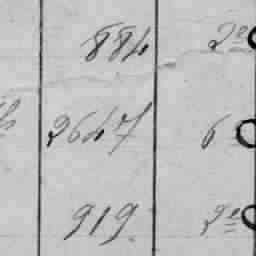 884 2e
2647 6
919 2e